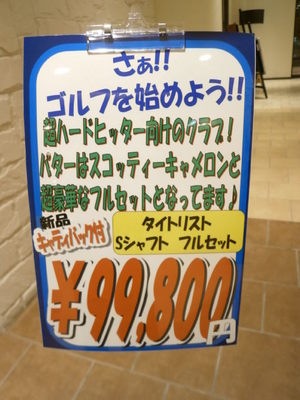 さぁ!!
ゴルフを始めよう!!
超ハードヒッター向けのクラブ!
パターはスコッティーキャメロンと
超豪華なフルセットとなってます♪
新品
キャディバック付
タイトリスト
Sシャフト フルセット
¥99,800円